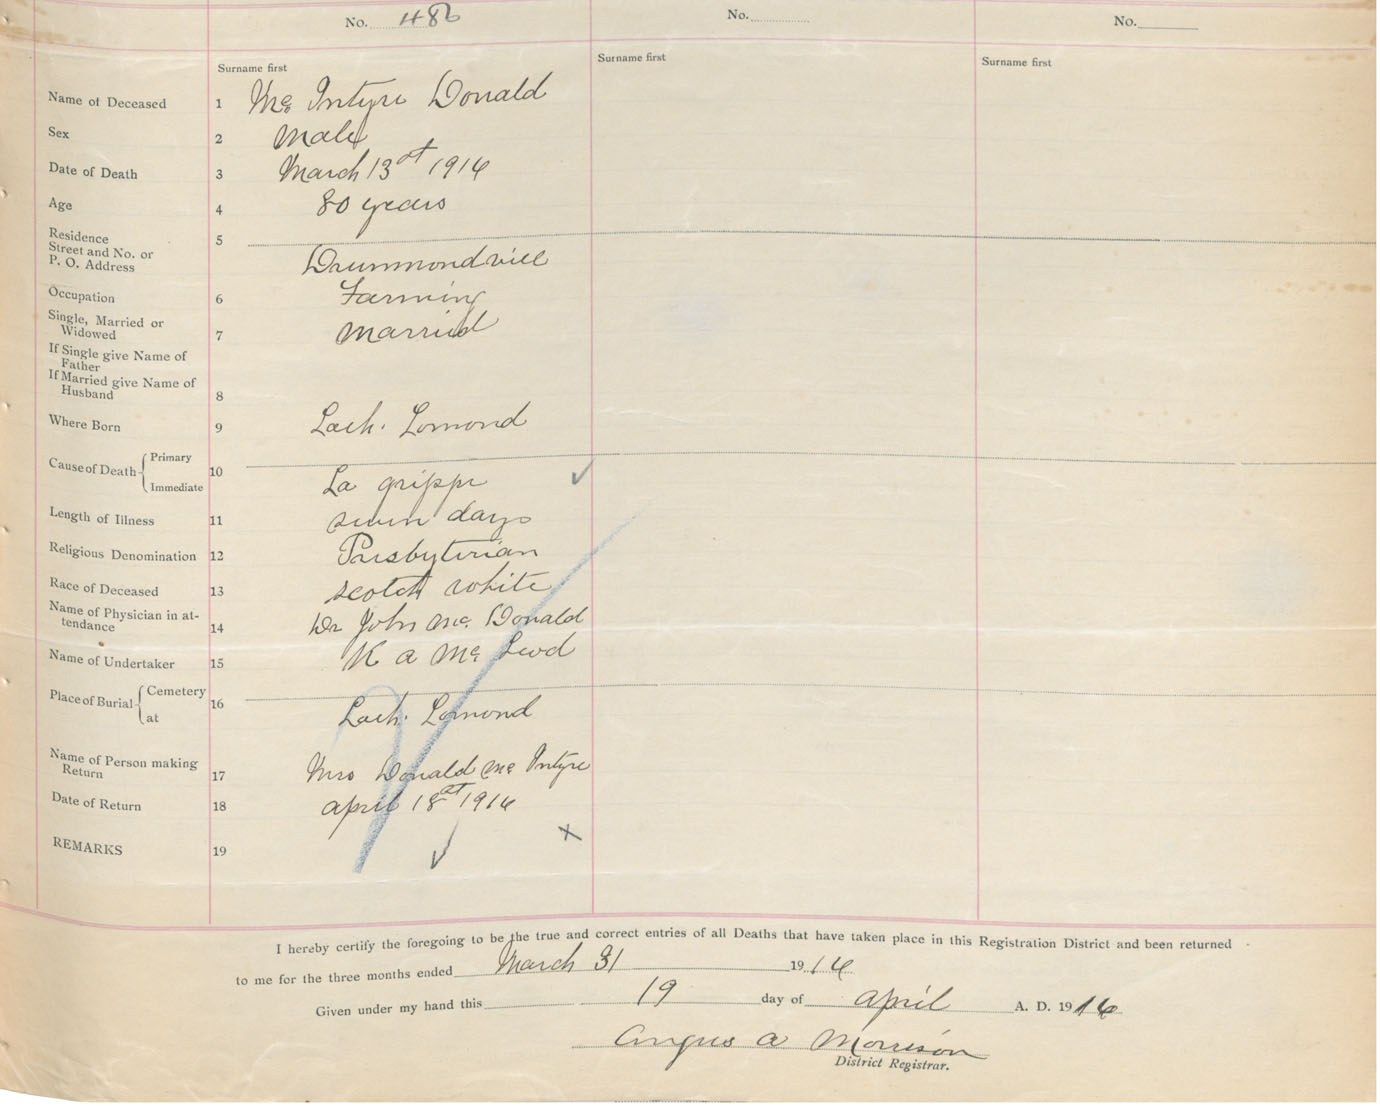 No. 486 No. No.
Surname first Surname first Surname first
Name of Deceased 1 Mc Intyre Donald
Sex 2 Male
Date of Death 3 March 13st 1914
Age 4 80 years
Residence 5
Street and No. or
P. O. Address Drummondville
Occupation 6 Farming
Single, Married or
Widowed 7 Married
If Single give Name of
Father
If Married give Name of
Husband 8
Where Born 9 Loch. Lomond
Cause of Death Primary 10
Immediate La grippe
Length of Illness 11 seven days
Religious Denomination 12 Presbyterian
Race of Deceased 13 scotch white
Name of Physician in at-
tendance 14 Dr John Mc. Donald
Name of Undertaker 15 K a Mc Leod
Place of Burial Cemetery 16
at Loch. Lomond
Name of Person making
Return 17 Mrs Donald Mc Intyre
Date of Return 18 april 18st 1914
REMARKS 19
I hereby certify the foregoing to be the true and correct entries of all Deaths that have taken place in this Registration District and been returned
to me for the three months ended March 31 19 14
Given under my hand this 19 day of april A. D. 19 14
Angus a Morrison
District Registrar.